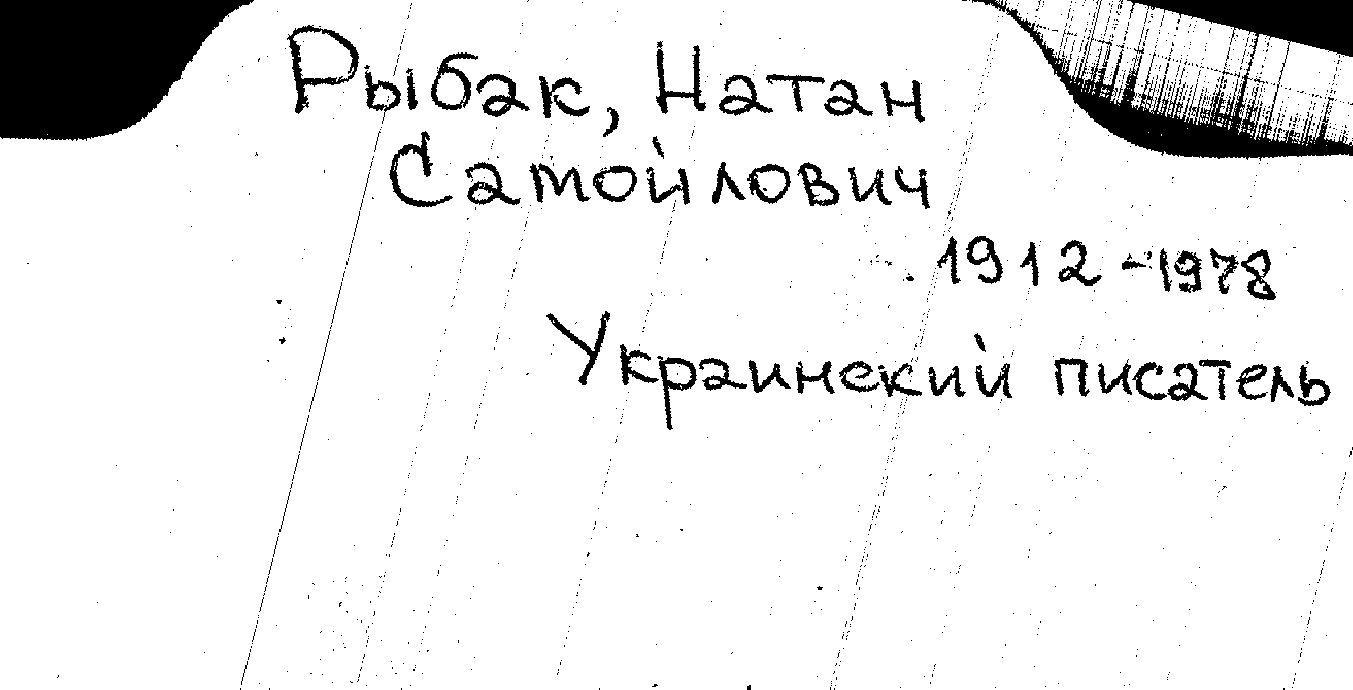 Рыбак, Натан
Самойлович
1912-1978
Украинский писатель